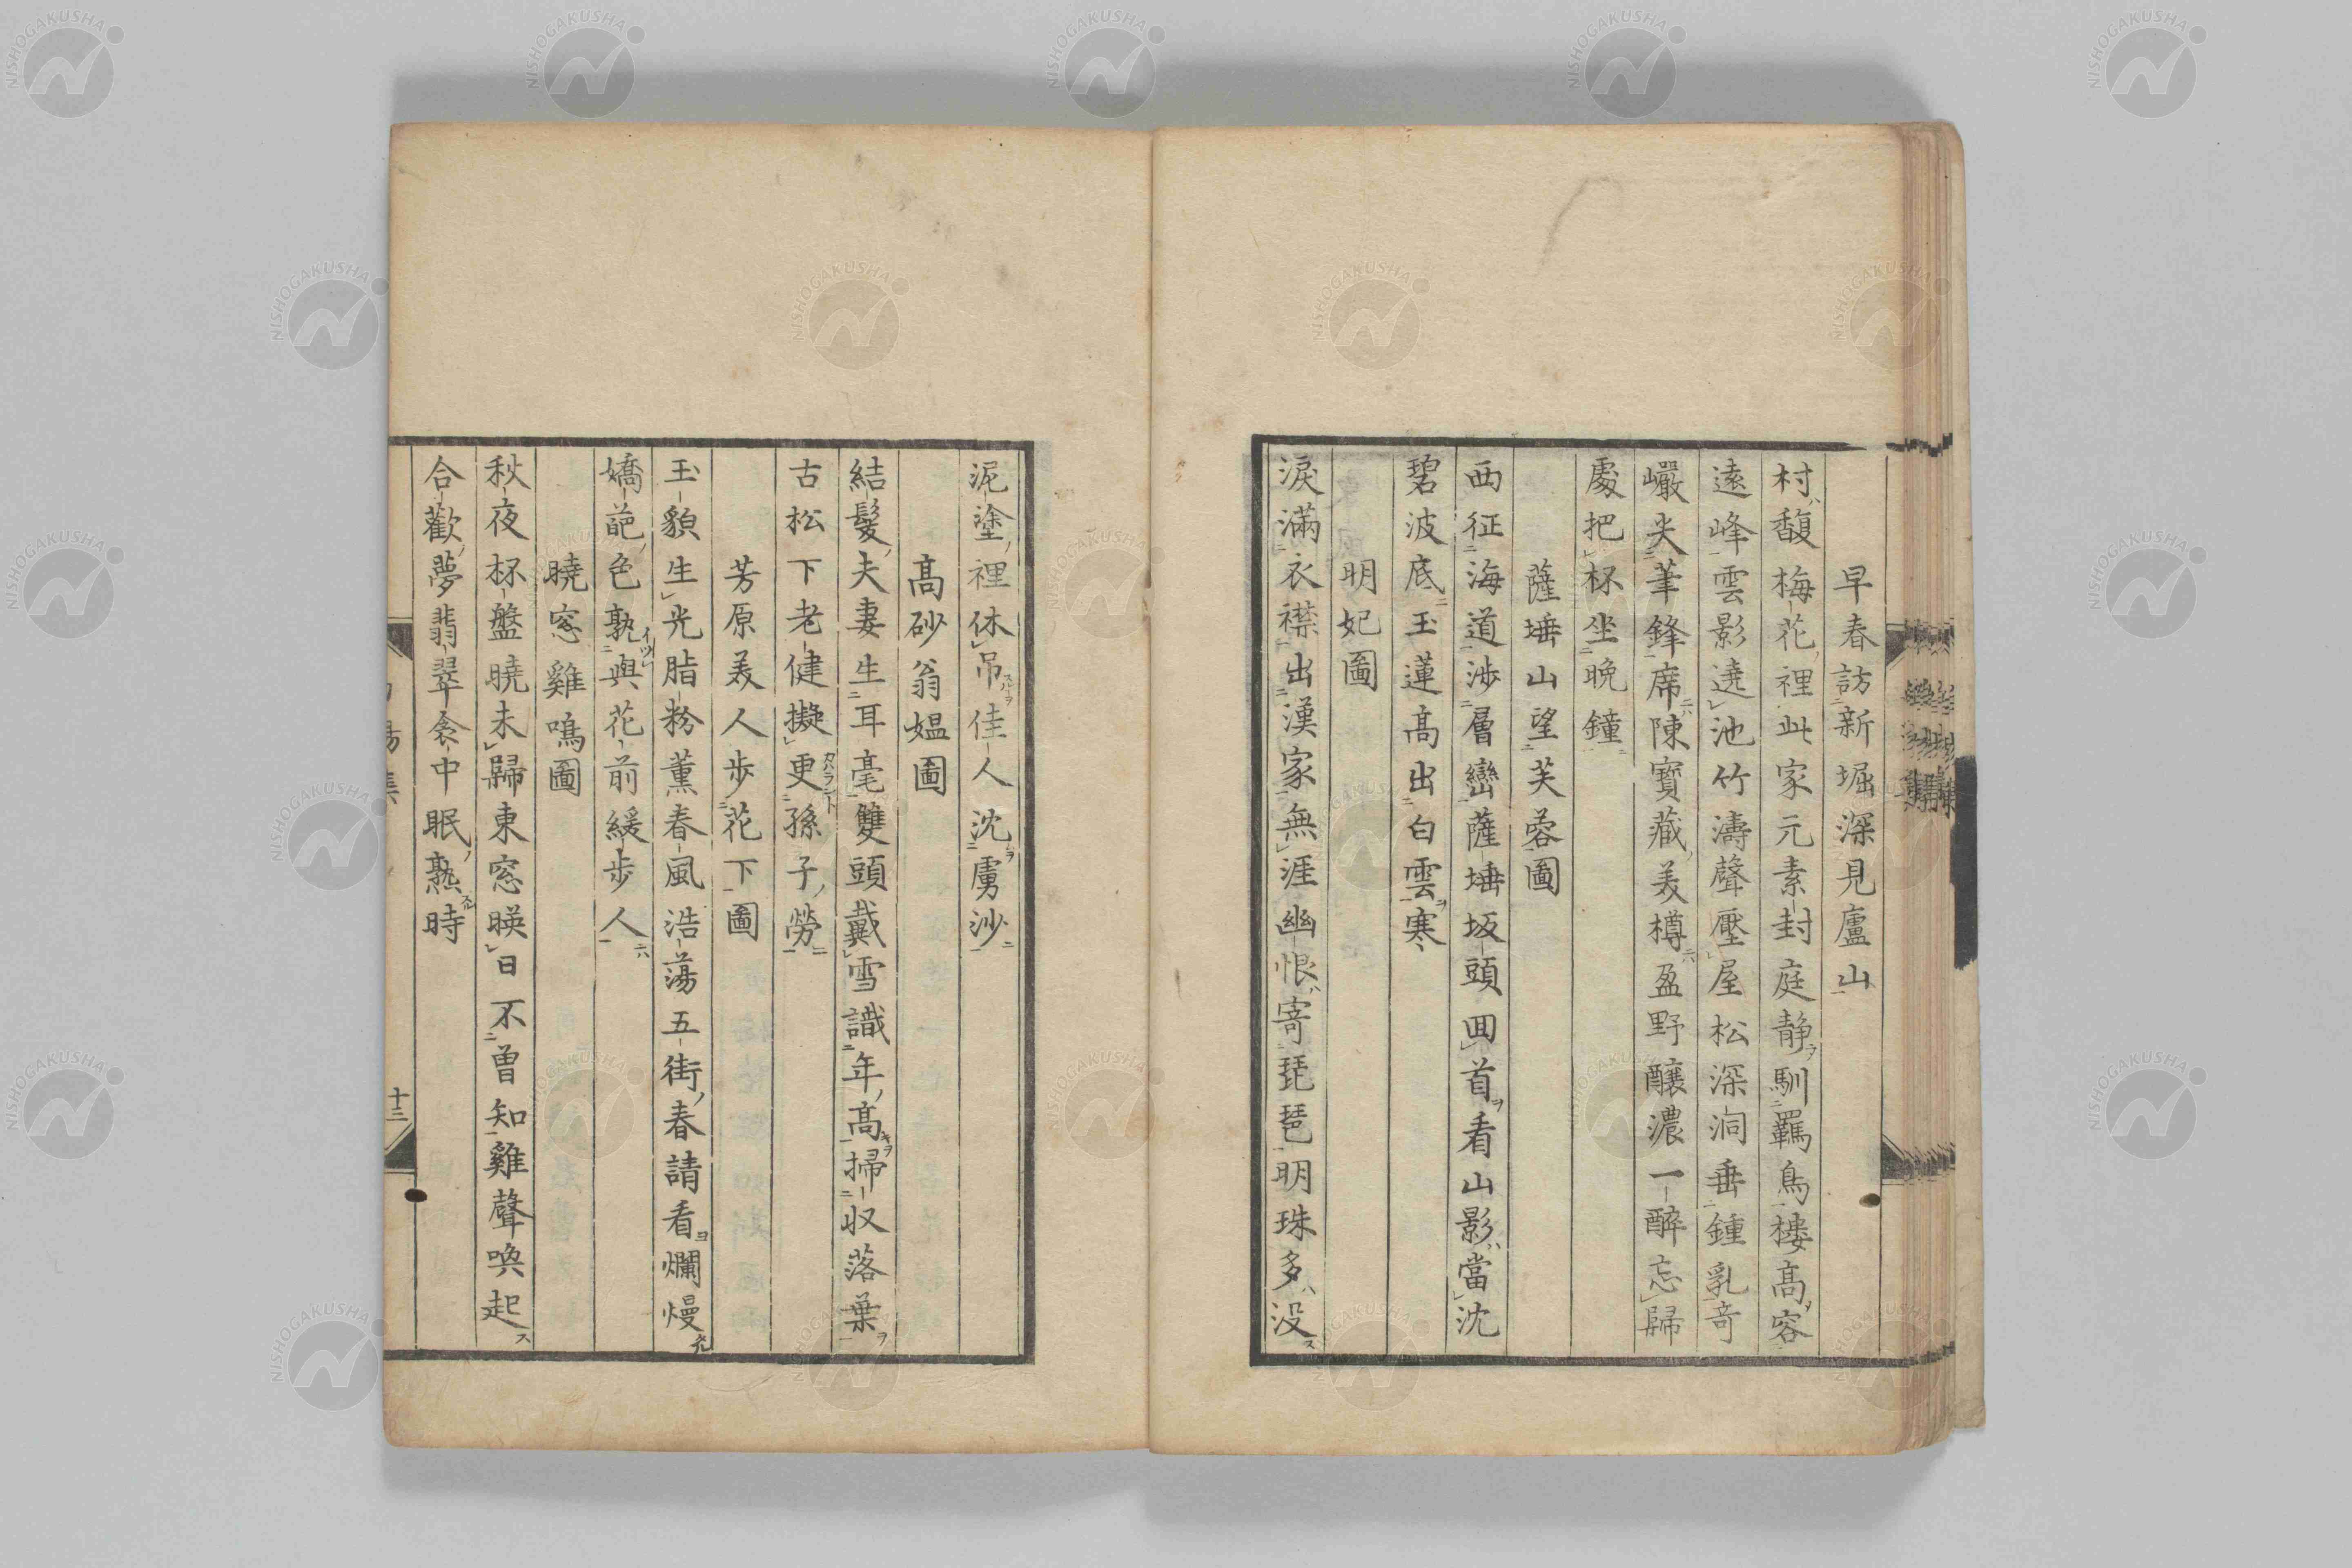 早春訪新堀深見廬山
村馥梅花裡此家元素封庭静馴羈鳥樓髙容
遠峰雲影遶池竹濤聲壓屋松深洞垂鍾乳竒
巖尖筆鋒席陳寶藏美樽盈野釀濃一醉忘歸
處把杯坐晩鐘
薩埵山望芙蓉圖
西征海道渉層巒薩埵坂頭囬首看山影當沈
碧波底玉蓮髙出白雲寒
明妃圖
淚滿衣襟出漢家無涯幽恨寄琵琶明珠多没
泥塗裡休吊佳人沈虜沙
髙砂翁媼圖
結髮夫妻生耳毫雙頭戴雪識年髙掃收落葉
古松下老健擬更孫子勞
芳原美人歩花下圖
玉貌生光脂粉薫春風浩蕩五街春請看爛熳
嬌葩色孰與花前緩歩人
曉窓雞鳴圖
秋夜杯盤曉未歸東窓暎日不曾知雞聲喚起
合歡夢翡翠衾中眠熟時
十三
NISHOGAKUSHA